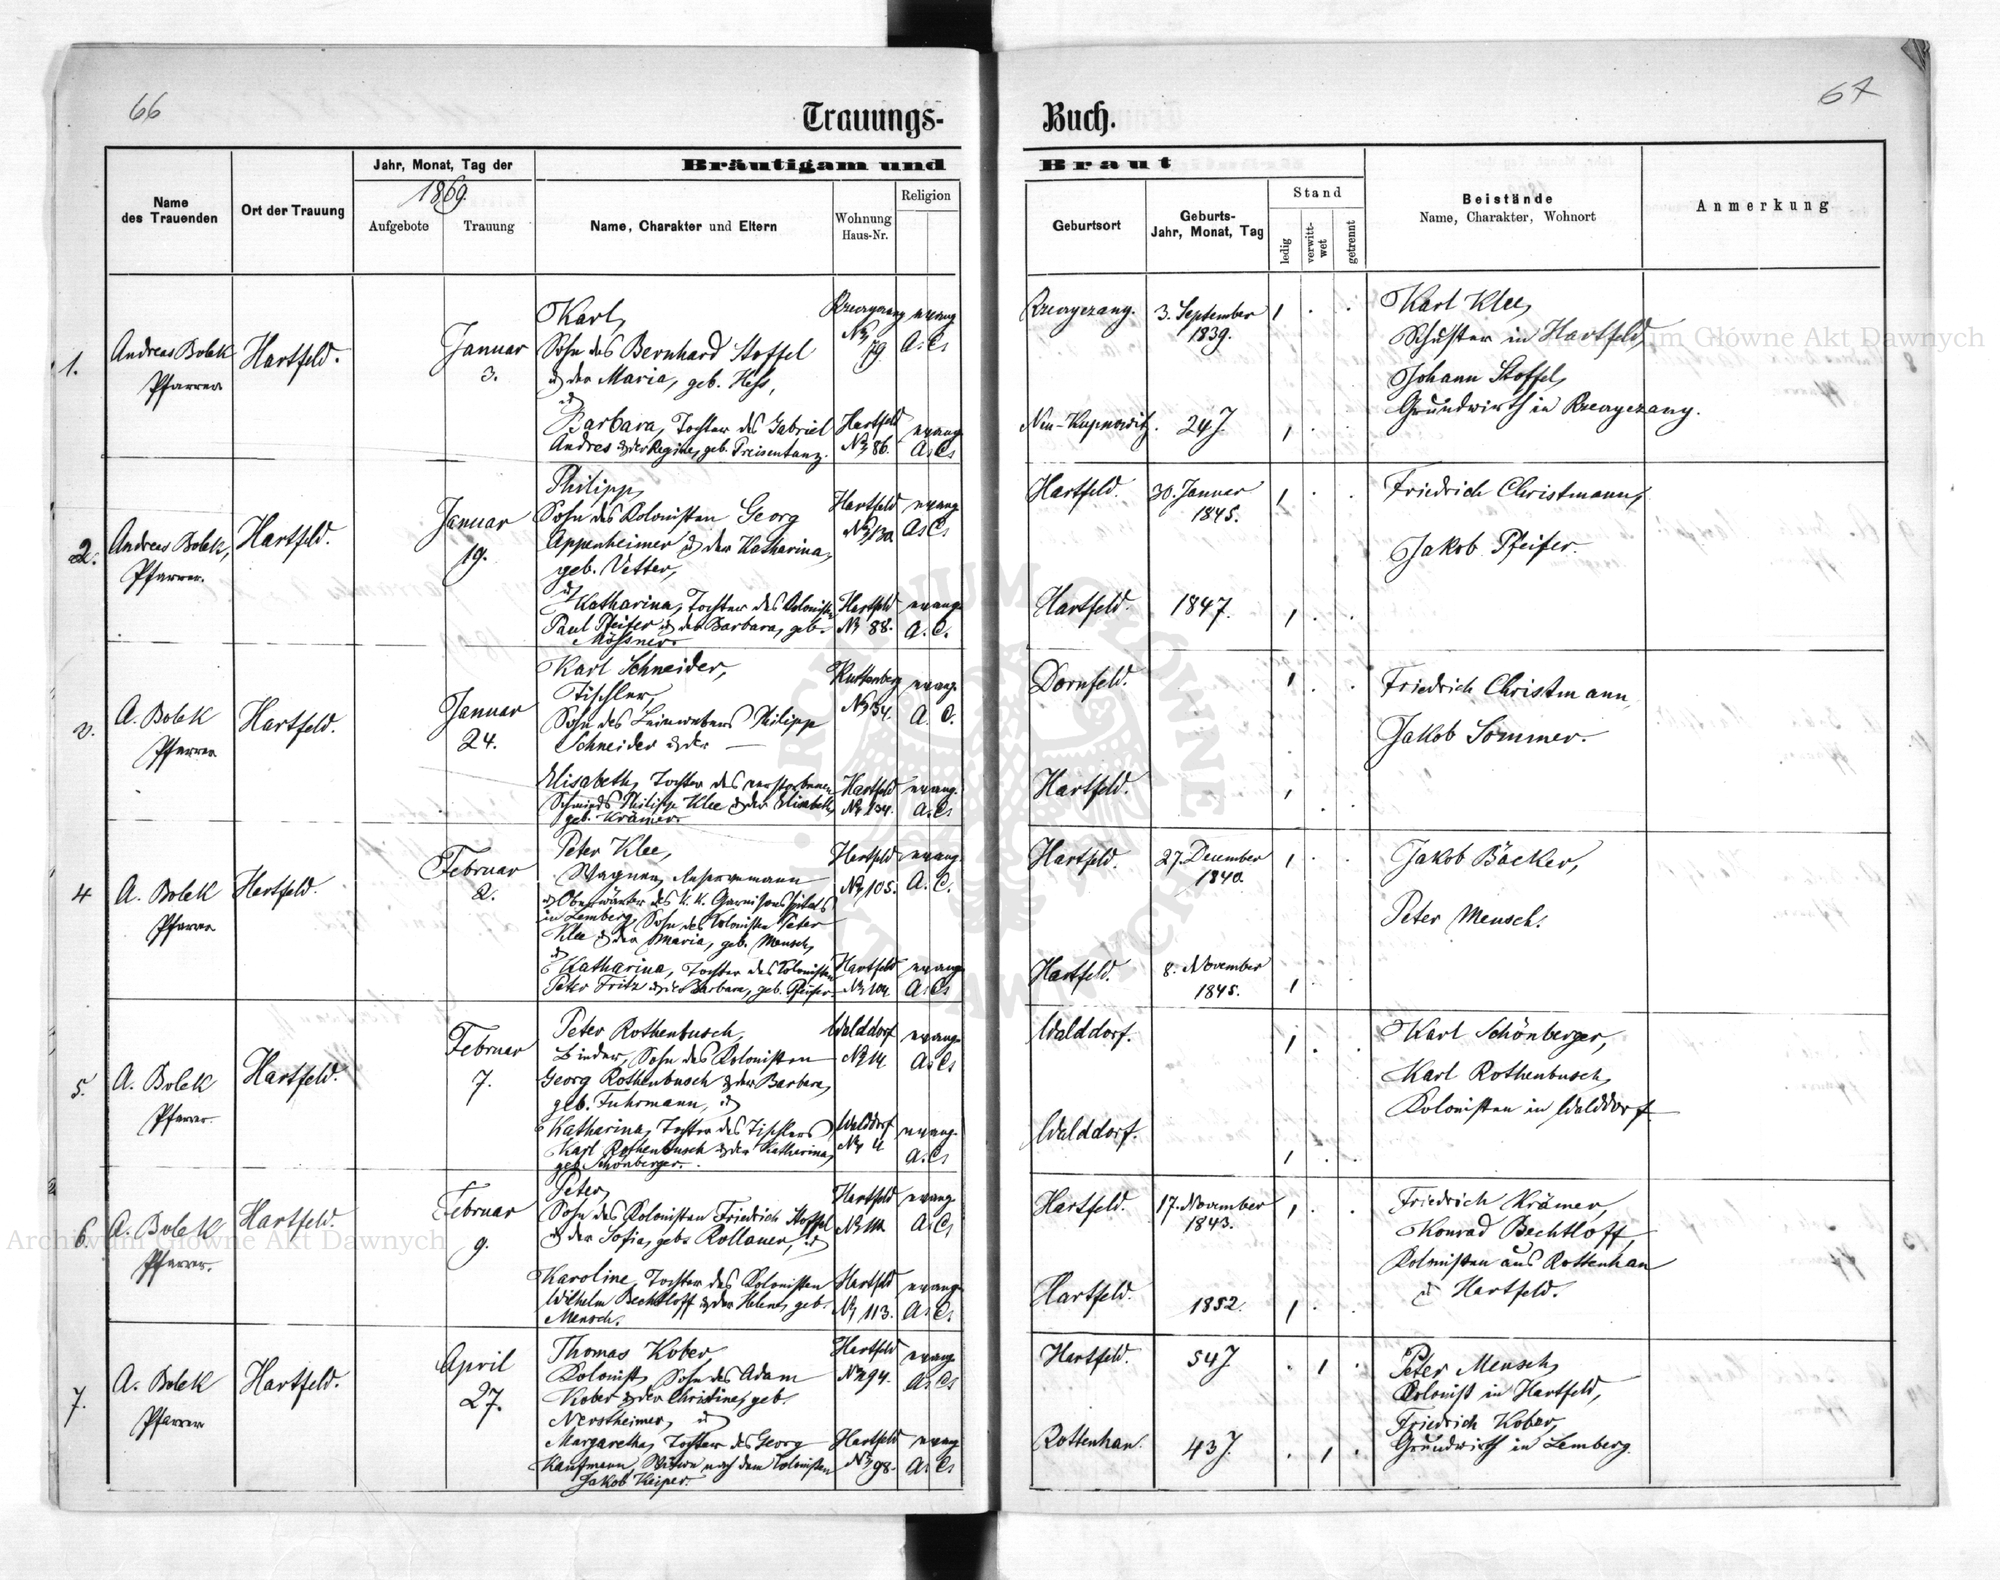 66
Trauungs-
Buch.
67
Name
des Trauenden
Ort der Trauung
Jahr, Monat, Tag der
1869.
Aufgebote
Trauung
Bräutigam und
Braut
Name, Charakter und Eltern
Wohnung
Haus-Nr.
Religion
Geburtsort
Geburts-
Jahr, Monat, Tag
Stand
ledig
verwitt-
wet
getrennt
Beistände
Name, Charakter, Wohnort
Anmerkung
1.
Andreas Bolek
Pfarrer
Hartfeld.
Januar
3.
Karl,
Sohn des Bernhard Stoffel
u der Maria, geb. Hess,
u
Barbara, Tochter des Gabriel
Andres u der Regine, geb. Preisentanz.
No 79
evang
A. C.
Hartfeld
No 86.
evang.
A. C.
3. September
1839.
24 J.
Karl Klee,
Schuster in Hartfeld,
Johann Stoffel,
Grundwirth in
2.
Andreas Bolek,
Pfarrer.
Hartfeld.
Januar
19.
Philipp,
Sohn des Kolonisten Georg
Appenheimer u der Katharina,
geb. Vetter,
u
Katharina, Tochter des Kolonisten
Paul Pfeifer u der Barbara, geb.
Mössner.
Hartfeld
No 130
evang
A. C.
Hartfeld
No 88.
evang.
A. C.
Hartfeld.
30. Januar
1845.
Hartfeld.
1847.
Friedrich Christmann,
Jakob Pfeifer.
A. Bolek
Pfarrer
Hartfeld.
Januar
24.
Karl Schneider,
Tischler,
Sohn des Leinwebers Philipp
Schneider u der —
Elisabeth, Tochter des verstorbenen
Schmieds Philipp Klee u der Elisabeth,
geb. Krämer.
No 34.
evang.
A. C.
Hartfeld
No 134.
evang.
A. C.
Dornfeld.
Hartfeld.
Friedrich Christmann,
Jakob Sommer.
4
A. Bolek
Pfarrer
Hartfeld.
Februar
2.
Peter Klee,
Wagner, Reservemann
u Oberwärter des K. K. Garnisonsspitals
in Lemberg, Sohn des Kolonisten Peter
Klee u der Maria, geb. Mensch,
u
Katharina, Tochter des Kolonisten
Peter Fritz u der Barbara, geb. Pfeifer.
Hartfeld
No 105.
evang.
A. C.
Hartfeld
No 104.
evang.
A. C.
Hartfeld.
27. December
1840.
Hartfeld.
8. November
1845.
Jakob Bäcker,
Peter Mensch.
5.
A. Bolek
Pfarrer.
Hartfeld.
Februar
7.
Peter Rothenbusch,
Binder, Sohn des Kolonisten
Georg Rothenbusch u der Barbara,
geb. Fuhrmann, u
Katharina, Tochter des Tischlers
Karl Rothenbusch u der Katharina,
geb. Schönberger.
Walddorf
No 14
evang.
A. C.
Walddorf
evang.
A. C.
Walddorf.
Walddorf.
Karl Schönberger,
Karl Rothenbusch,
Kolonisten in Walddorf
6.
A. Bolek
Pfarrer.
Hartfeld.
Februar
9.
Peter,
Sohn des Kolonisten Friedrich Stoffel
u der Sofia, geb. Kollauer, u
Karoline, Tochter des Kolonisten
Wilhelm Bechtloff u der Helene, geb.
Mensch.
Hartfeld
evang.
A. C.
Hartfeld
No 113.
evang.
A. C.
Hartfeld.
17. November
1843.
Hartfeld.
1852.
Friedrich Krämer,
Konrad Bechtloff,
Kolonisten aus Rottenhan
u Hartfeld.
7.
A. Bolek
Pfarrer
Hartfeld.
April
27.
Thomas Kober
Kolonist, Sohn des Adam
Kober u der Christine, geb.
Nerstheimer, u
Margaretha, Tochter des Georg
Kaufmann, Witwe nach dem Kolonisten
Jakob Keiper.
Hartfeld
No 94.
evang.
A. C.
Hartfeld
No 98.
evang.
A. C.
Hartfeld.
54 J.
Rottenhan.
43 J.
Peter Mensch,
Kolonist in Hartfeld,
Friedrich Kober,
Grundwirth in Lemberg.
Archiwum Główne Akt Dawnych
ARCHIWUM GŁÓWNE AKT DAWNYCH